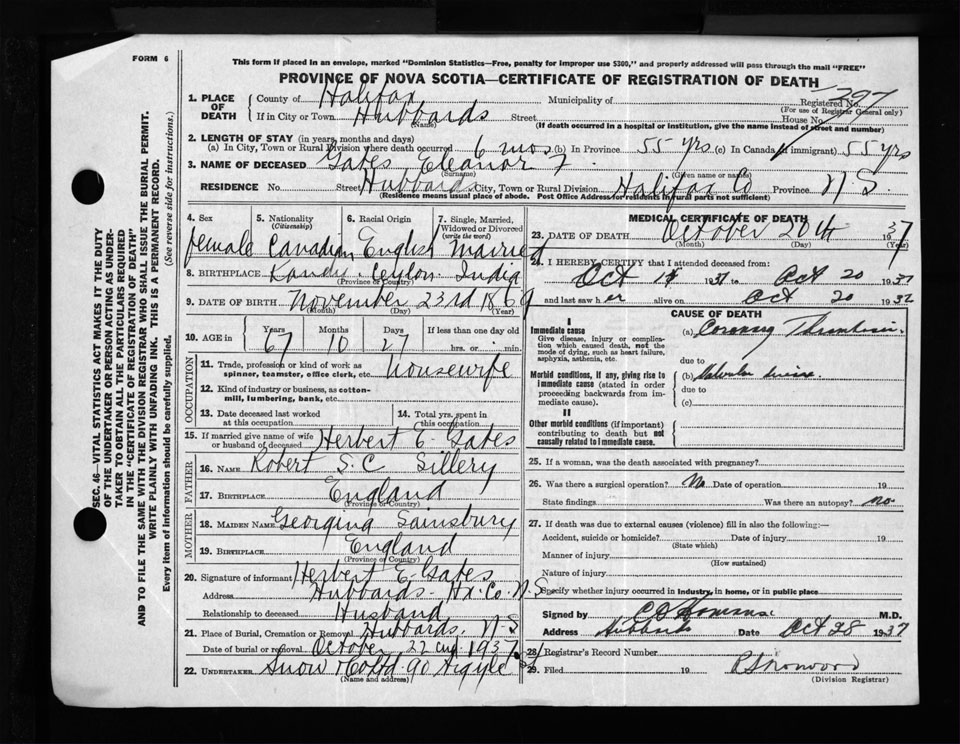 FORM 6
This form if placed in an envelope, marked "Dominion Statistics—Free, penalty for improper use $300," and properly addressed will pass through the mail "FREE"
PROVINCE OF NOVA SCOTIA—CERTIFICATE OF REGISTRATION OF DEATH
SEC. 46—VITAL STATISTICS ACT MAKES IT THE DUTY
OF THE UNDERTAKER OR PERSON ACTING AS UNDER-
TAKER TO OBTAIN ALL THE PARTICULARS REQUIRED
IN THE "CERTIFICATE OF REGISTRATION OF DEATH"
AND TO FILE THE SAME WITH THE DIVISION REGISTRAR WHO SHALL ISSUE THE BURIAL PERMIT.
WRITE PLAINLY WITH UNFADING INK. THIS IS A PERMANENT RECORD.
Every item of information should be carefully supplied. (See reverse side for instructions.)
1. PLACE OF DEATH County of Halifax Municipality of Registered No. 297
(For use of Registrar General only)
If in City or Town Hubbards Street House No.
(Name) (If death occurred in a hospital or institution, give the name instead of street and number)
2. LENGTH OF STAY (in years, months and days)
(a) In City, Town or Rural Division where death occurred 6 mos (b) In Province 55 yrs (c) In Canada if immigrant 55 yrs
3. NAME OF DECEASED Gates Eleanor F.
(Surname) (Given name or names)
RESIDENCE No. Street Hubbards City, Town or Rural Division Halifax Co Province N.S.
(Residence means usual place of abode. Post Office Address for residents in rural parts not sufficient)
4. Sex 5. Nationality (Citizenship) 6. Racial Origin 7. Single, Married, Widowed or Divorced (write the word)
female Canadian English married
8. BIRTHPLACE Kandy Ceylon India
(Province or Country)
9. DATE OF BIRTH November 23rd 1869
(Month) (Day) (Year)
10. AGE IN Years 67 Months 10 Days 27 If less than one day old hrs. or min.
OCCUPATION
11. Trade, profession or kind of work as spinner, teamster, office clerk, etc. Housewife
12. Kind of industry or business, as cotton-mill, lumbering, bank, etc.
13. Date deceased last worked at this occupation 14. Total yrs. spent in this occupation
15. If married give name of wife or husband of deceased Herbert E. Gates
FATHER
16. NAME Robert S. C Sillery
17. BIRTHPLACE England
(Province or Country)
MOTHER
18. MAIDEN NAME Georgina Sainsbury
19. BIRTHPLACE England
(Province or Country)
20. Signature of informant Herbert E. Gates
Address Hubbards- Hx. Co. N.S.
Relationship to deceased Husband
21. Place of Burial, Cremation or Removal Hubbards, N.S
Date of burial or removal October 22 1937
22. UNDERTAKER Snow & Co Ltd. 90 Argyle St
(Name and address)
MEDICAL CERTIFICATE OF DEATH
23. DATE OF DEATH October 20th 1937
(Month) (Day) (Year)
24. I HEREBY CERTIFY that I attended deceased from:
Oct 1st 1937 to Oct 20 1937
and last saw her alive on Oct 20 1937
CAUSE OF DEATH
I
Immediate cause (a) Coronary Thrombosis
Give disease, injury or complication which caused death, not the mode of dying, such as heart failure, asphyxia, asthenia, etc.
due to
Morbid conditions, if any, giving rise to immediate cause (stated in order proceeding backwards from immediate cause). (b)
due to
(c)
II
Other morbid conditions (if important) contributing to death but not causally related to immediate cause.
25. If a woman, was the death associated with pregnancy?
26. Was there a surgical operation? No Date of operation 19
State findings Was there an autopsy? no
27. If death was due to external causes (violence) fill in also the following:—
Accident, suicide or homicide? Date of injury 19
(State which)
Manner of injury
(How sustained)
Nature of injury
Specify whether injury occurred in industry, in home, or in public place
Signed by M.D.
Address Hubbards Date Oct 28 1937
28. Registrar's Record Number
29. Filed 19
(Division Registrar)